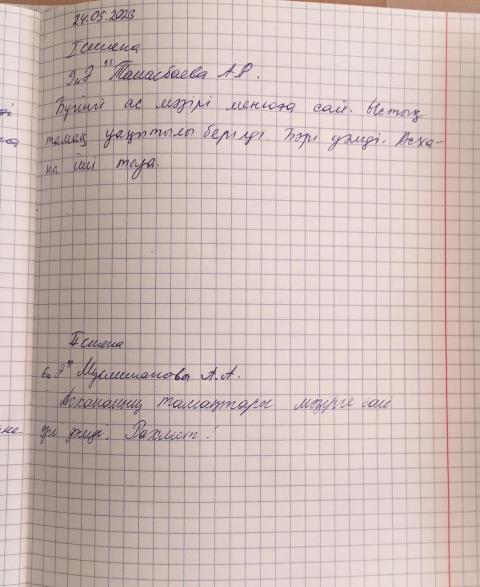 24.05.2023
I смена
3 "Д" Танасбаева А.Р.
Бүгінгі ас мәзірі менюға сай. Ыстық
тамақ уақытылы берілді. Бәрі дәмді. Асха-
на іші таза.
II смена
6 "Д" Муслиманова А.А.
Асхананың тамақтары мәзірге сай
әрі дәмді. Рахмет!